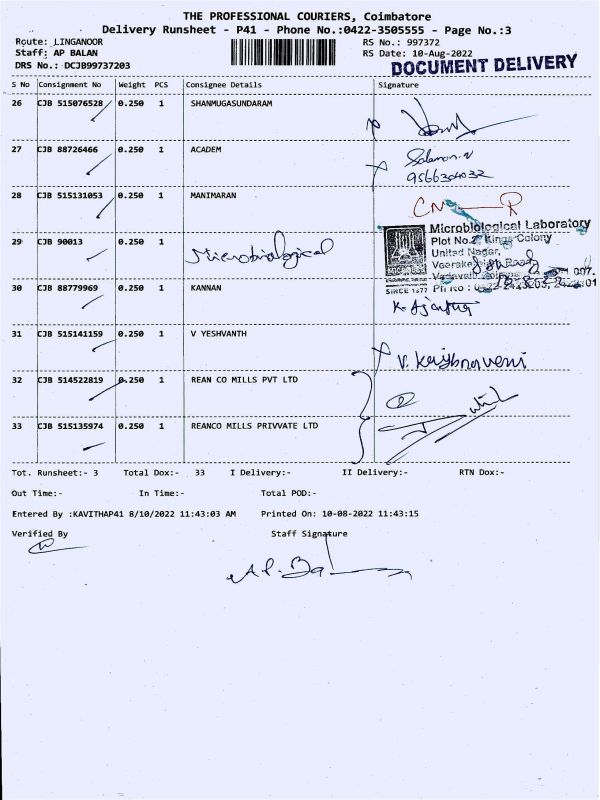 THE PROFESSIONAL COURIERS, Coimbatore
Delivery Runsheet - P41 - Phone No.:0422-3505555 - Page No.:3
Route: LINGANOOR RS No.: 997372
Staff: AP BALAN RS Date: 10-Aug-2022
DRS No.: DCJB99737203 DOCUMENT DELIVERY
S No Consignment No Weight PCS Consignee Details Signature
26 CJB 515076528 0.250 1 SHANMUGASUNDARAM
27 CJB 88726466 0.250 1 ACADEM
9566304032
28 CJB 515131053 0.250 1 MANIMARAN
Microbiological Laboratory
Plot No.2, Kings Colony
United Nagar,
29 CJB 90013 0.250 1 Microbiological
SINCE 1977
30 CJB 88779969 0.250 1 KANNAN
31 CJB 515141159 0.250 1 V YESHVANTH
32 CJB 514522819 0.250 1 REAN CO MILLS PVT LTD
33 CJB 515135974 0.250 1 REANCO MILLS PRIVVATE LTD
Tot. Runsheet:- 3 Total Dox:- 33 I Delivery:- II Delivery:- RTN Dox:-
Out Time:- In Time:- Total POD:-
Entered By :KAVITHAP41 8/10/2022 11:43:03 AM Printed On: 10-08-2022 11:43:15
Verified By Staff Signature
A.P. Bal